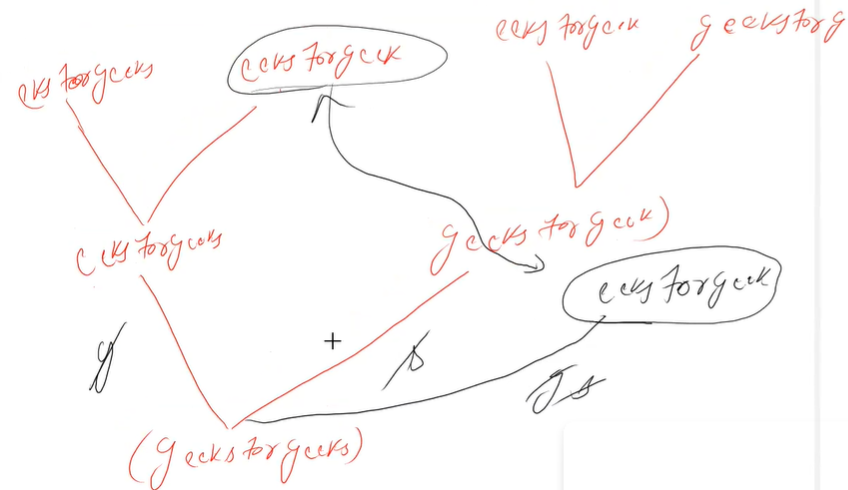 eeksForgeek
geeksForg
eksForgeeks
eeksForgeek
geeksForgeek)
eeksForgeeks
eeksForgeek
g
+
s
gs
(geeksForgeeks)